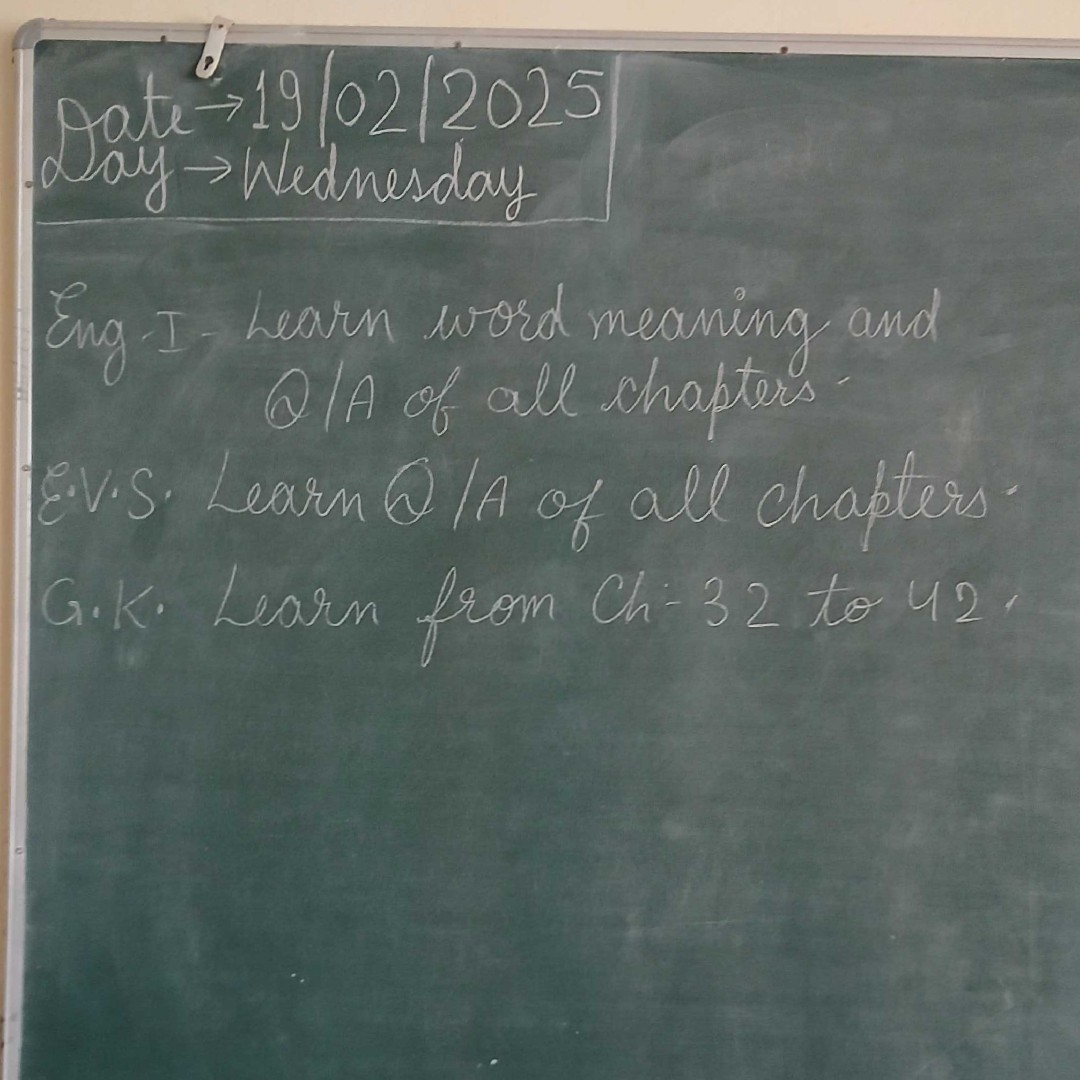 Date → 19/02/2025
Day → Wednesday
Eng-I- Learn word meaning and
Q/A of all chapters.
E.V.S. Learn Q/A of all chapters.
G.K. Learn from Ch-32 to 42.